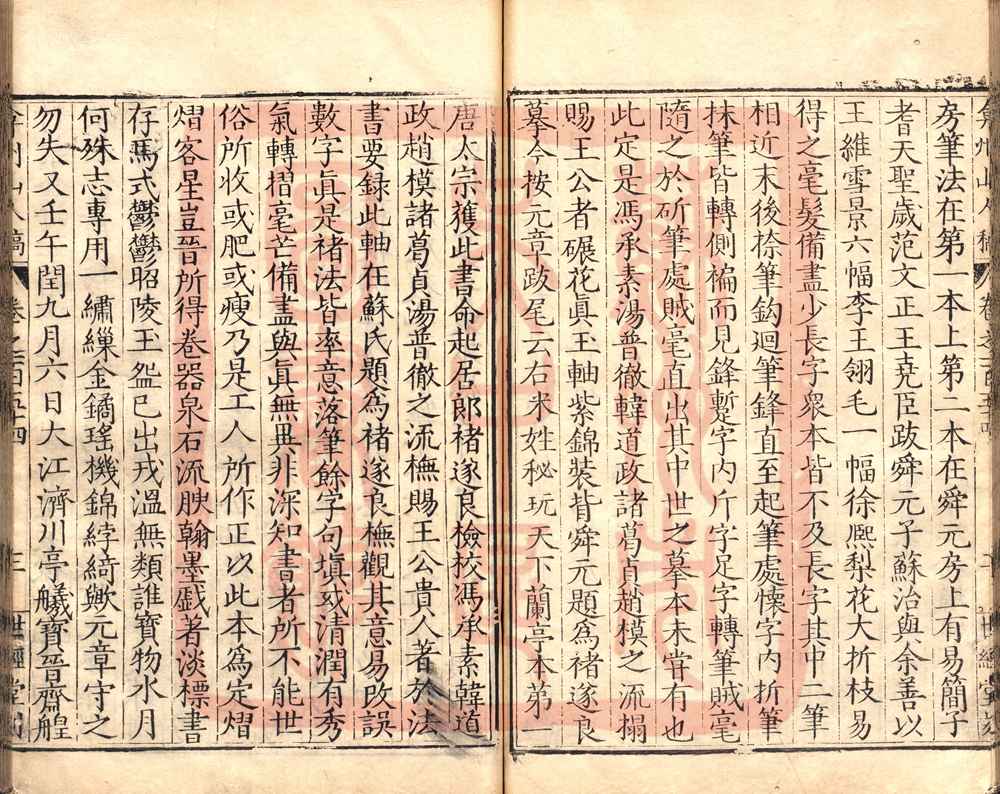 弇州山人稿 卷之一百五十四 世經堂刻
房筆法在第一本上第二本在舜元房上有易簡子
耆天聖歲范文正王堯臣跋舜元子蘇治與余善以
王維雪景六幅李王翎毛一幅徐熙梨花大折枝易
得之毫髮備盡少長字衆本皆不及長字其中二筆
相近末後捺筆鈎迴筆鋒直至起筆處懷字內折筆
抹筆皆轉側褊而見鋒蹔字內斤字足字轉筆賊毫
隨之於斫筆處賊毫直出其中世之摹本未嘗有也
此定是馮承素湯普徹韓道政諸葛貞趙模之流搨
賜王公者碾花眞玉軸紫錦裝背舜元題為褚遂良
摹今按元章跋尾云右米姓秘玩天下蘭亭本第一
唐太宗獲此書命起居郎褚遂良檢校馮承素韓道
政趙模諸葛貞湯普徹之流橅賜王公貴人著於法
書要録此軸在蘇氏題為褚遂良橅觀其意易改誤
數字眞是褚法皆率意落筆餘字句填或清潤有秀
氣轉摺毫芒備盡與眞無異非深知書者所不能世
俗所收或肥或瘦乃是工人所作正以此本為定熠
熠客星豈晉所得卷器泉石流腴翰墨戲著淡標書
存馬式鬱鬱昭陵玉盌已出戎溫無類誰寶物水月
何殊志專用一繡繅金鐍瑤機錦綍綺歟元章守之
勿失又壬午閏九月六日大江濟川亭艤寶晉齋艎
弇州山人稿 卷之一百五十四 三 世經堂刻